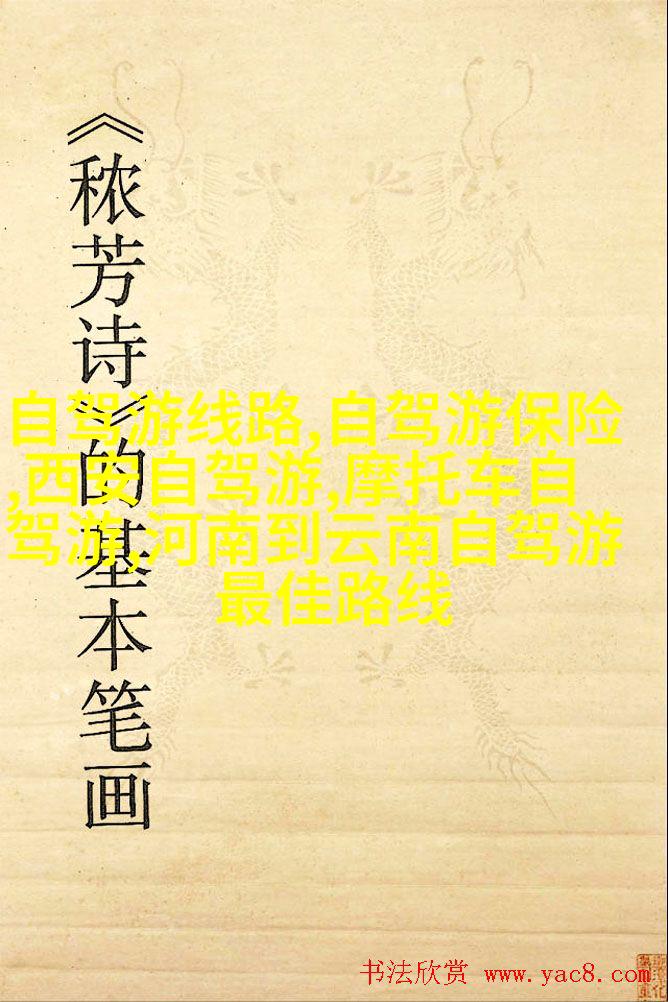 《秾芳诗》的基本笔画
自驾游线路,自驾游保险
,西安自驾游,摩托车自
驾游,河南到云南自驾游
最佳路线
书法欣赏 www.yac8.com